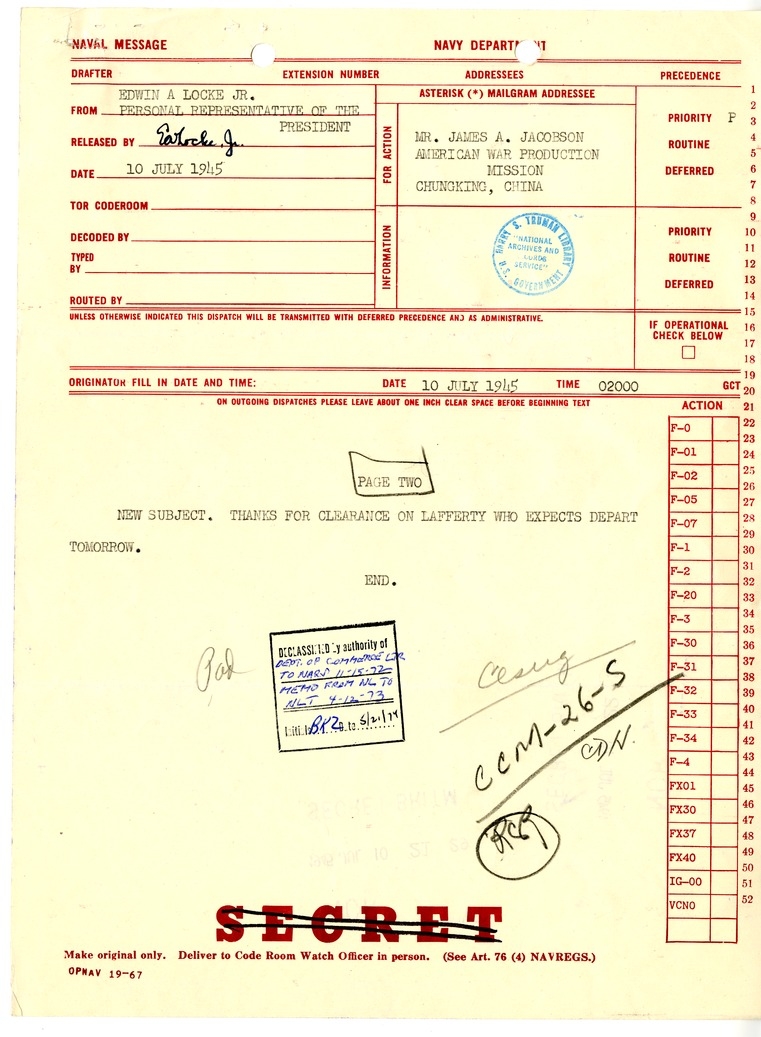 NAVAL MESSAGE NAVY DEPARTMENT
DRAFTER EXTENSION NUMBER ADDRESSEES PRECEDENCE
EDWIN A LOCKE JR.
FROM PERSONAL REPRESENTATIVE OF THE
PRESIDENT
RELEASED BY EALocke, Jr.
DATE 10 JULY 1945
TOR CODEROOM
DECODED BY
TYPED
BY
ROUTED BY
ASTERISK (*) MAILGRAM ADDRESSEE
FOR ACTION
MR. JAMES A. JACOBSON
AMERICAN WAR PRODUCTION
MISSION
CHUNGKING, CHINA
INFORMATION
HARRY S. TRUMAN LIBRARY
"NATIONAL
ARCHIVES AND
SERVICE"
U.S. GOVERNMENT
PRIORITY P
ROUTINE
DEFERRED
PRIORITY
ROUTINE
DEFERRED
UNLESS OTHERWISE INDICATED THIS DISPATCH WILL BE TRANSMITTED WITH DEFERRED PRECEDENCE AND AS ADMINISTRATIVE.
IF OPERATIONAL
CHECK BELOW
ORIGINATOR FILL IN DATE AND TIME: DATE 10 JULY 1945 TIME 02000 GCT
ON OUTGOING DISPATCHES PLEASE LEAVE ABOUT ONE INCH CLEAR SPACE BEFORE BEGINNING TEXT
ACTION
PAGE TWO
NEW SUBJECT. THANKS FOR CLEARANCE ON LAFFERTY WHO EXPECTS DEPART
TOMORROW.
END.
DECLASSIFIED by authority of
DEPT. OF COMMERCE LTR
TO NARS 11-15-72
MEMO FROM NL TO
NLT 4-12-73
BRZ Date 5/21/74
CCM-26-S
CDN.
F-0
F-01
F-02
F-05
F-07
F-1
F-2
F-20
F-3
F-30
F-31
F-32
F-33
F-34
F-4
FX01
FX30
FX37
FX40
IG-00
VCNO
1
2
3
4
5
6
7
8
9
10
11
12
13
14
15
16
17
18
19
20
21
22
23
24
25
26
27
28
29
30
31
32
33
34
35
36
37
38
39
40
41
42
43
44
45
46
47
48
49
50
51
52
SECRET
Make original only. Deliver to Code Room Watch Officer in person. (See Art. 76 (4) NAVREGS.)
OPNAV 19-67